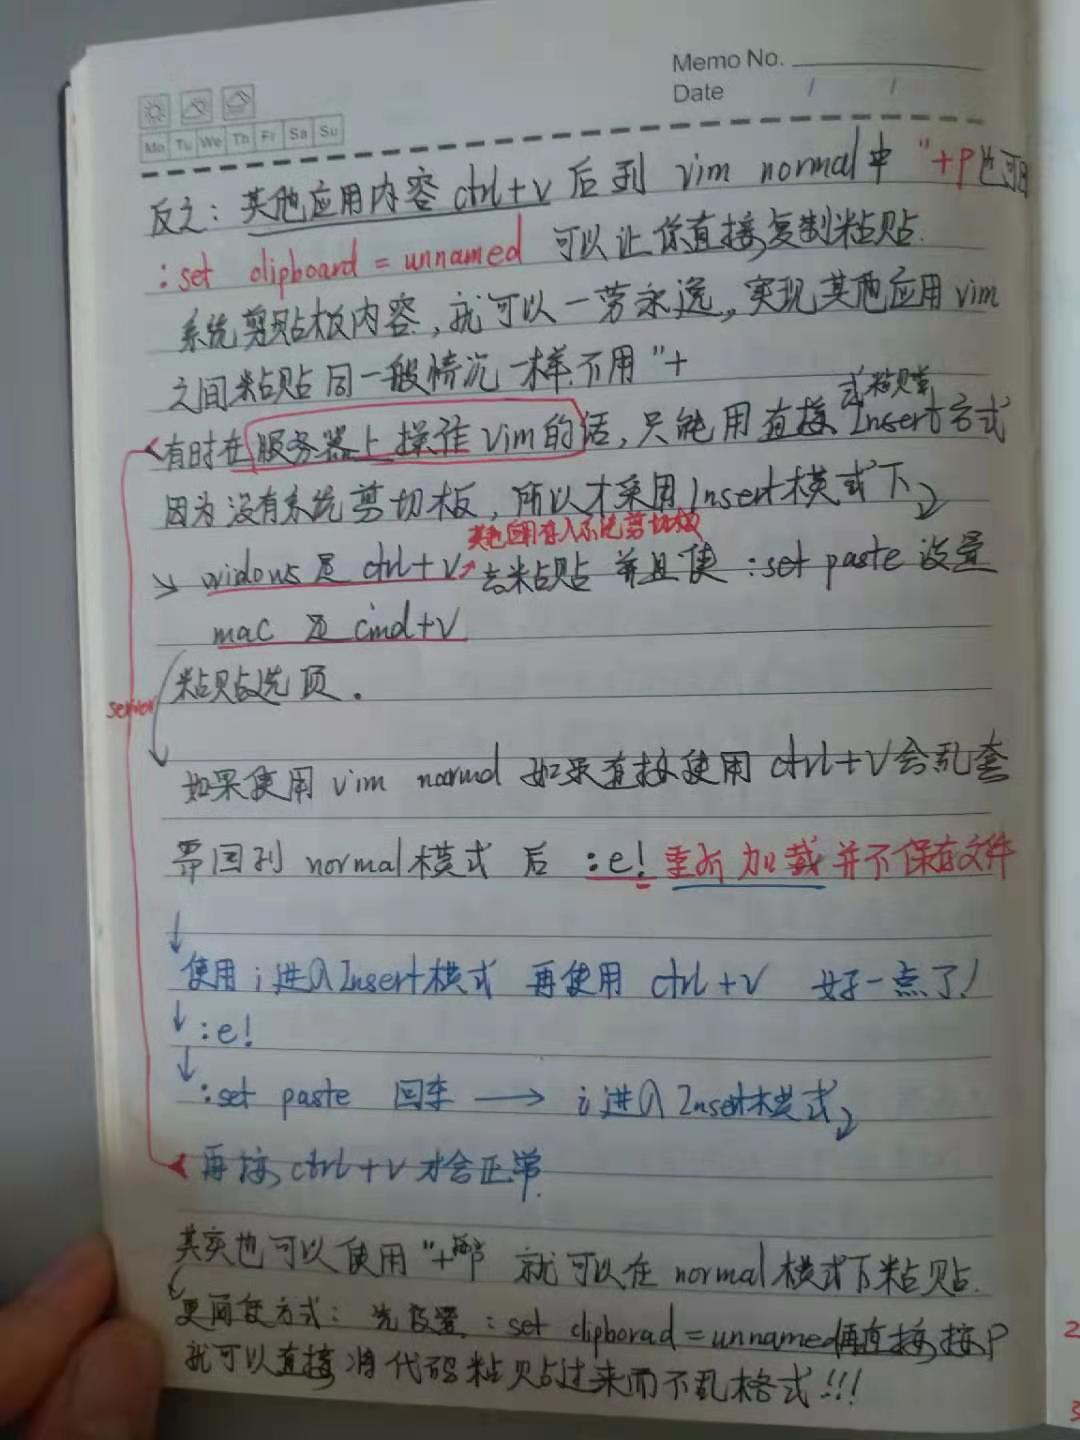 Memo No.
Date / /
Mo Tu We Th Fr Sa Su
反之: 其他应用内容 ctrl+v 后到 vim normal 中 "+p 即可
:set clipboard = unnamed 可以让你直接复制粘贴
系统剪贴板内容, 就可以一劳永逸, 实现其他应用 vim
之间粘贴同一般情况一样不用 "+
有时在服务器上操作 vim 的话, 只能用直接 Insert 方式
因为没有系统剪切板, 所以才采用 Insert 模式下
其他应用存入系统剪切板
widous 是 ctrl+v 去粘贴 并且使 :set paste 设置
mac 是 cmd+v
粘贴选项.
server
如果使用 vim normal 如果直接使用 ctrl+v 会乱套
需回到 normal 模式 后 :e! 重新加载并不保存文件
使用 i 进入 Insert 模式 再使用 ctrl+v 好一点了!
:e!
:set paste 回车 → i 进入 Insert 模式
再按 ctrl+v 才会正常.
其实也可以使用 "+ 就可以在 normal 模式下粘贴.
更简便方式: 先设置 :set clipborad = unnamed 再直接按 p
就可以直接将代码粘贴过来而不乱格式!!!
2
3